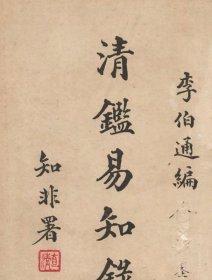 李伯通編
清鑑易知錄
知非署